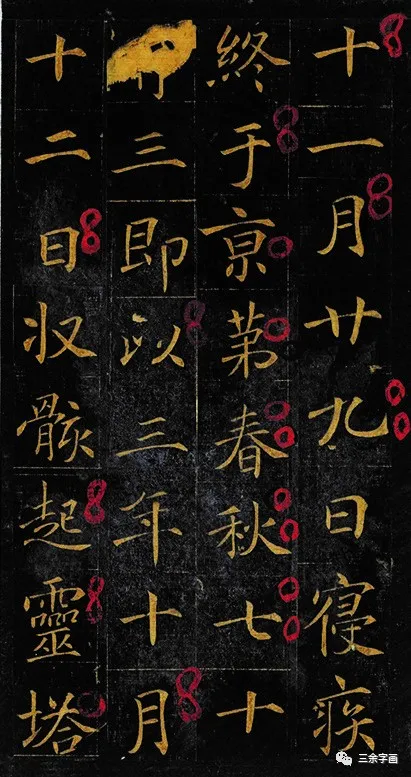 十一月廿九日寝疾
終于京第春秋七十
有三即以三年十月
十二日収骸起靈塔
三余字画